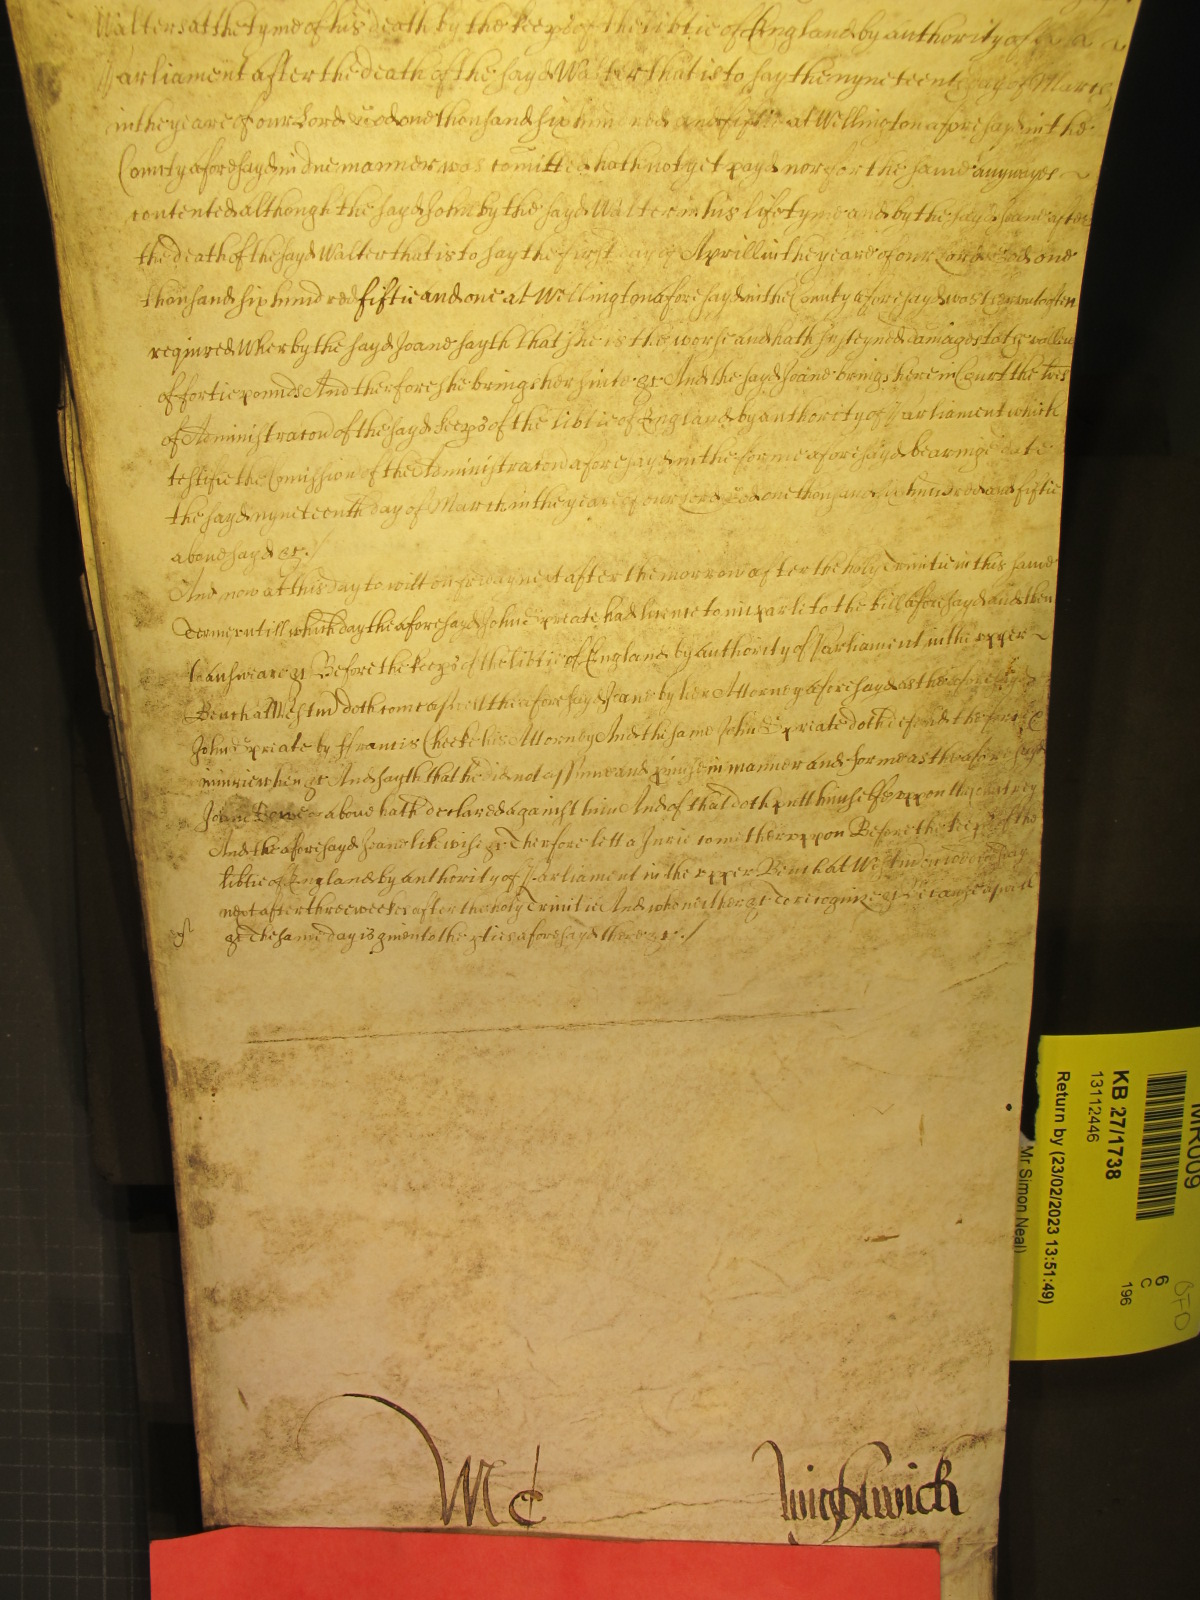 Walters at the tyme of his death by the keeps of the libtie of England by authority of
Parliament after the death of the sayd Walter that is to say the nyneteenth day of March
in the yeare of our Lord God one thousand six hundred and fiftie at Wellington aforesayd in the
County aforesayd in due manner was comitted hath not yet payd nor for the same anywayes
contented although the sayd John by the sayd Walter in his lifetyme and by the sayd Joane after
the death of the sayd Walter that is to say the first day of Aprill in the yeare of our Lord God one
thousand six hundred fiftie and one at Wellington aforesayd in the County aforesayd was therunto often
required Wherby the sayd Joane sayth that she is the worse and hath susteyned damages to the vallue
of fortie pounds And therfore she brings her suite &c And the sayd Joane brings here in Court the lres
of Administracon of the sayd keeps of the libtie of England by authority of Parliament which
testifie the Comission of the Administracon aforesayd in the forme aforesayd bearinge date
the sayd nyneteenth day of March in the yeare of our Lord God one thousand six hundred and fiftie
abovesayd &c ./
And now at this day to witt on fryday next after the morrow after the holy Trinitie in this same
Terme untill which day the aforesayd John had licence to imparle to the bill aforesayd and then
to answeare &c Before the keeps of the libtie of England by authority of Parliament in the upper
Bench at Westmr doth come aswell the aforesayd Joane by her Attorney aforesayd as the aforesayd
John by Ffrancis Cheeke his Attorny And the same John doth defend the force &
iniurie when &c And sayth that he did not assume and pmise in manner and forme as the aforesayd
Joane above hath declared against him And of that doth putt himselfe uppon the countrey
And the aforesayd Joane likewise &c Therefore lett a Jurie come theruppon Before the keeps of the
libtie of England by authority of Parliament in the upper Bench at Westmr on
next after three weekes after the holy Trinitie And who neither &c To recognize &c Because aswell
&c The same day is given to the pties aforesayd there &c ./
Wightwick
MR009
KB 27/1738
13112446
Return by (23/02/2023 13:51:49)
Mr Simon Neal)
6
C
196